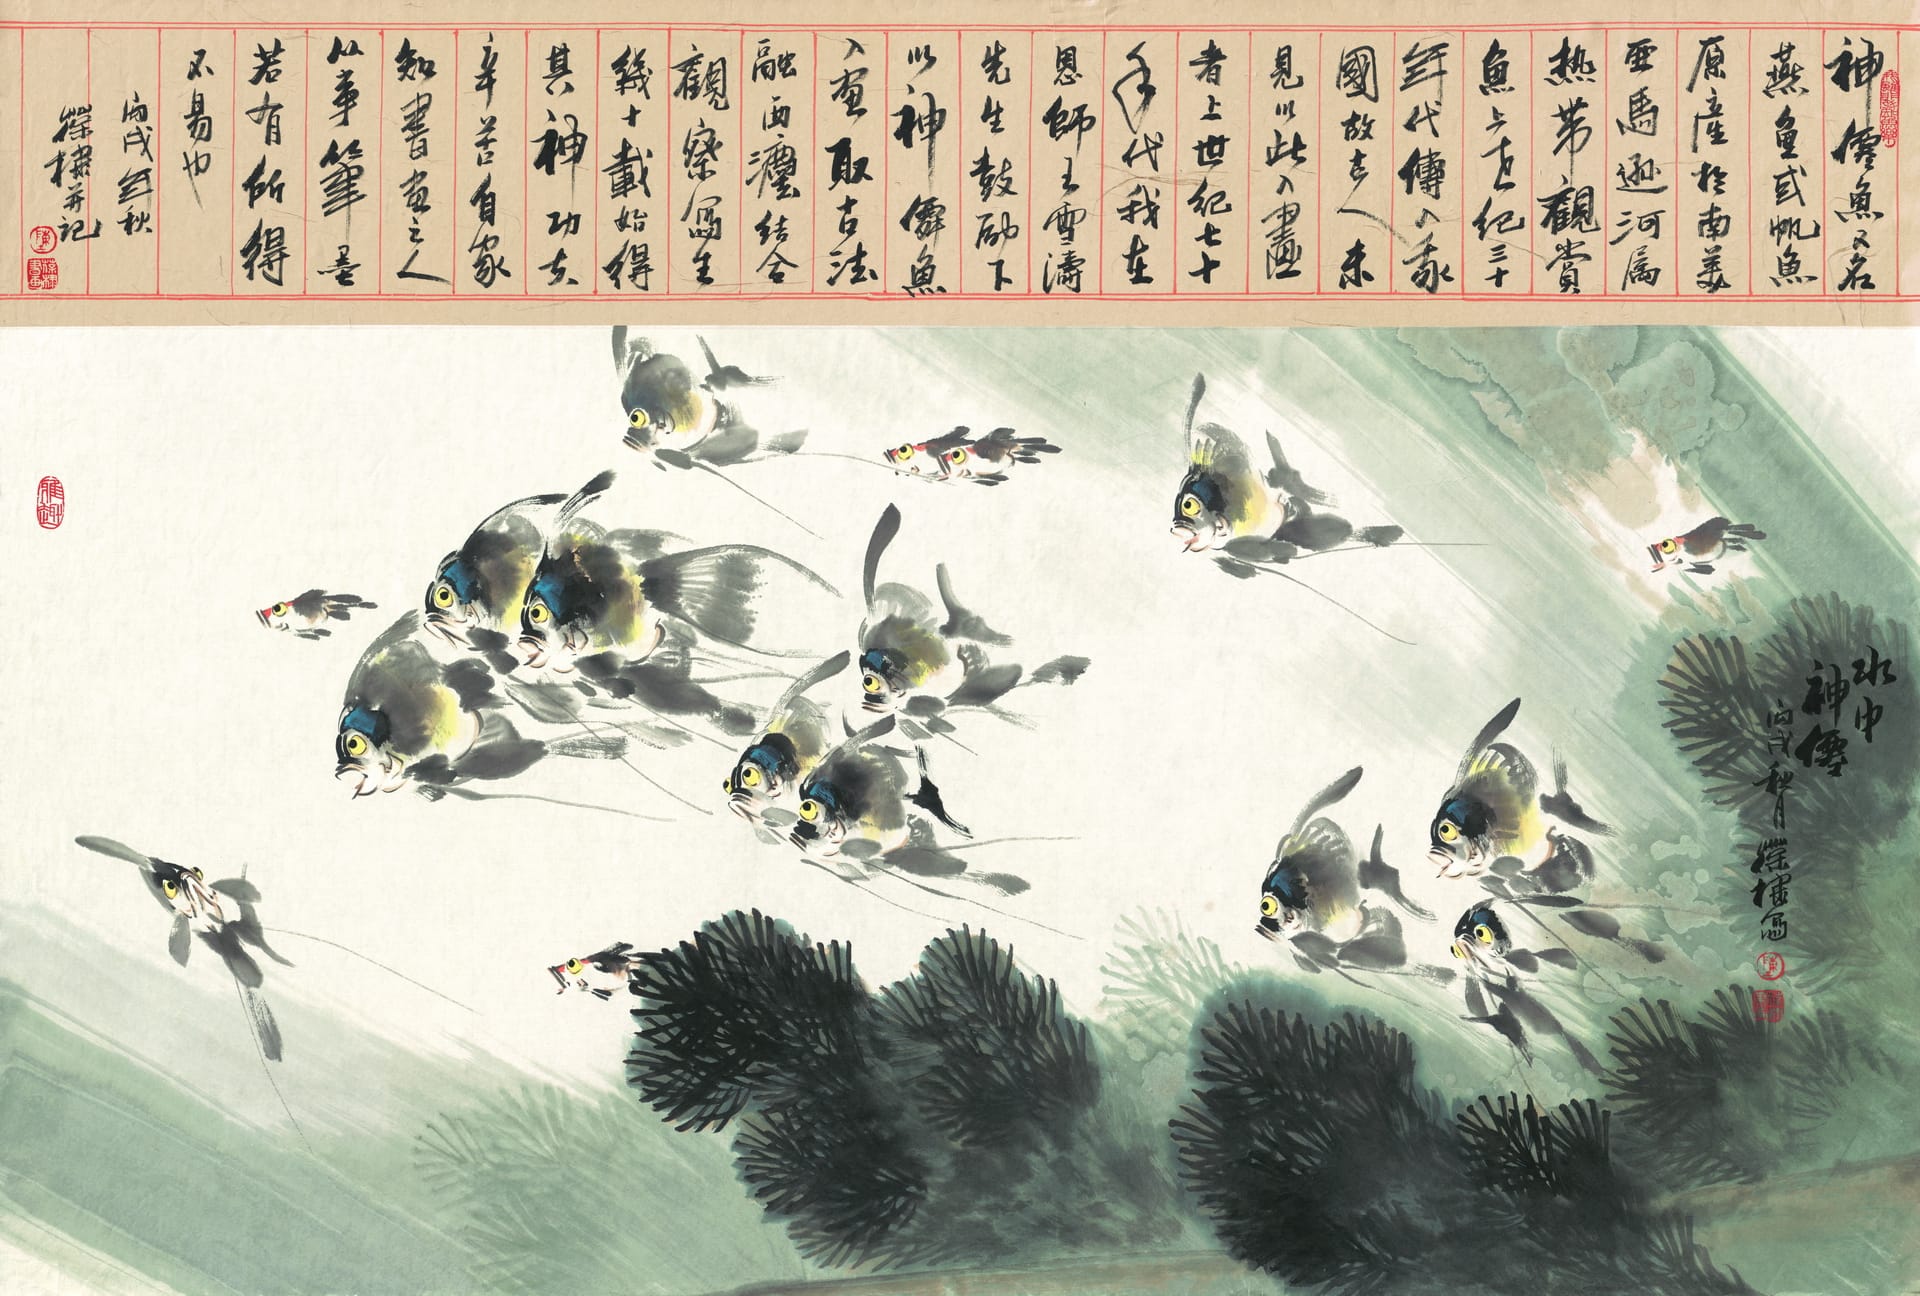 神僊魚又名
燕魚或帆魚
原產於南美
亞馬遜河屬
熱帶觀賞
魚上世紀三十
年代傳入我
國故古人未
見以此入畫
者上世紀七十
年代我在
恩師王雪濤
先生鼓勵下
以神僊魚
入畫取古法
融西瀍結合
觀察寫生
幾十載始得
其神功夫
辛苦自家
知書畫之人
以事筆墨
若有所得
不易也
丙戌年秋
葆棣并記
水中
神僊
丙戌秋月
葆棣寫